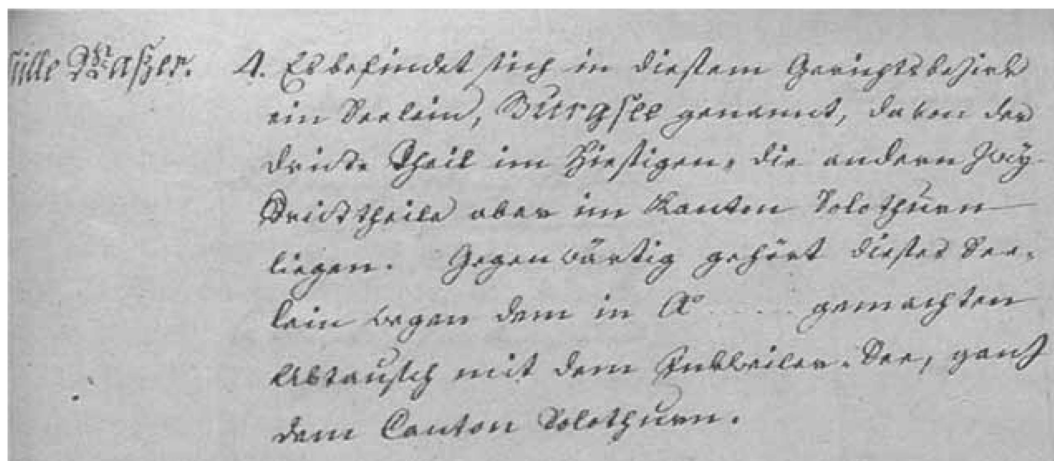 stille Waßer.
4. Es befindet sich in diesem Gerichtsbezirk
ein Seelein, Burgsee genannt, davon der
dritte Theil im Hiesigen, die andern zwey
Dritttheile aber im Kanton Solothurn
liegen. Gegenwärtig gehört dieses See-
lein wegen dem in Ao ...... gemachten
Abtausch mit dem Inkweiler-See, ganz
dem Canton Solothurn.